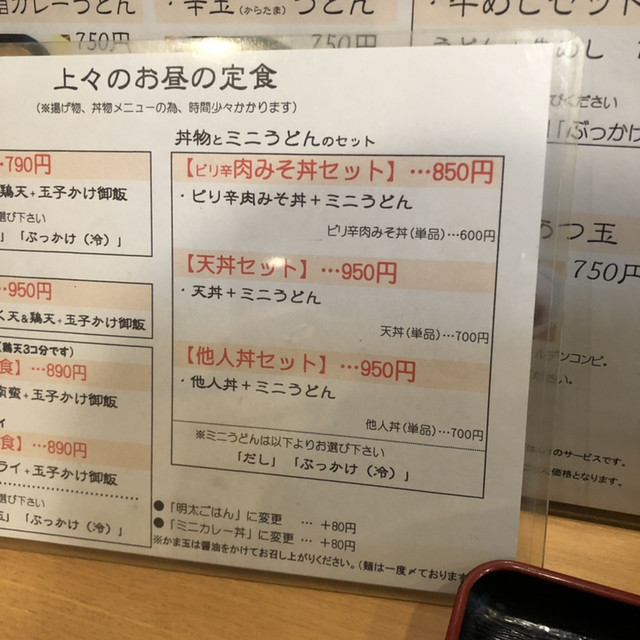 カレーうどん
・辛玉(からたま)うどん
750円
750円
・牛めしセット
上々のお昼の定食
(※揚げ物、丼物メニューの為、時間少々かかります)
…790円
鶏天+玉子かけ御飯
選び下さい
」「ぶっかけ(冷)」
…950円
天&鶏天+玉子かけ御飯
鶏天3コ分です)
食】…890円
+玉子かけ御飯
食】…890円
ライ+玉子かけ御飯
選び下さい
」「ぶっかけ(冷)」
丼物とミニうどんのセット
【ピリ辛肉みそ丼セット】…850円
・ピリ辛肉みそ丼+ミニうどん
ピリ辛肉みそ丼(単品)…600円
【天丼セット】…950円
・天丼+ミニうどん
天丼(単品)…700円
【他人丼セット】…950円
・他人丼+ミニうどん
他人丼(単品)…700円
※ミニうどんは以下よりお選び下さい
「だし」「ぶっかけ(冷)」
●「明太ごはん」に変更 … +80円
●「ミニカレー丼」に変更 … +80円
※かま玉は醤油をかけてお召し上がりください。(麺は一度〆ております
ください
「ぶっかけ
あつ玉
750円
ルデンコンビ。
のサービスです。
価格となります。